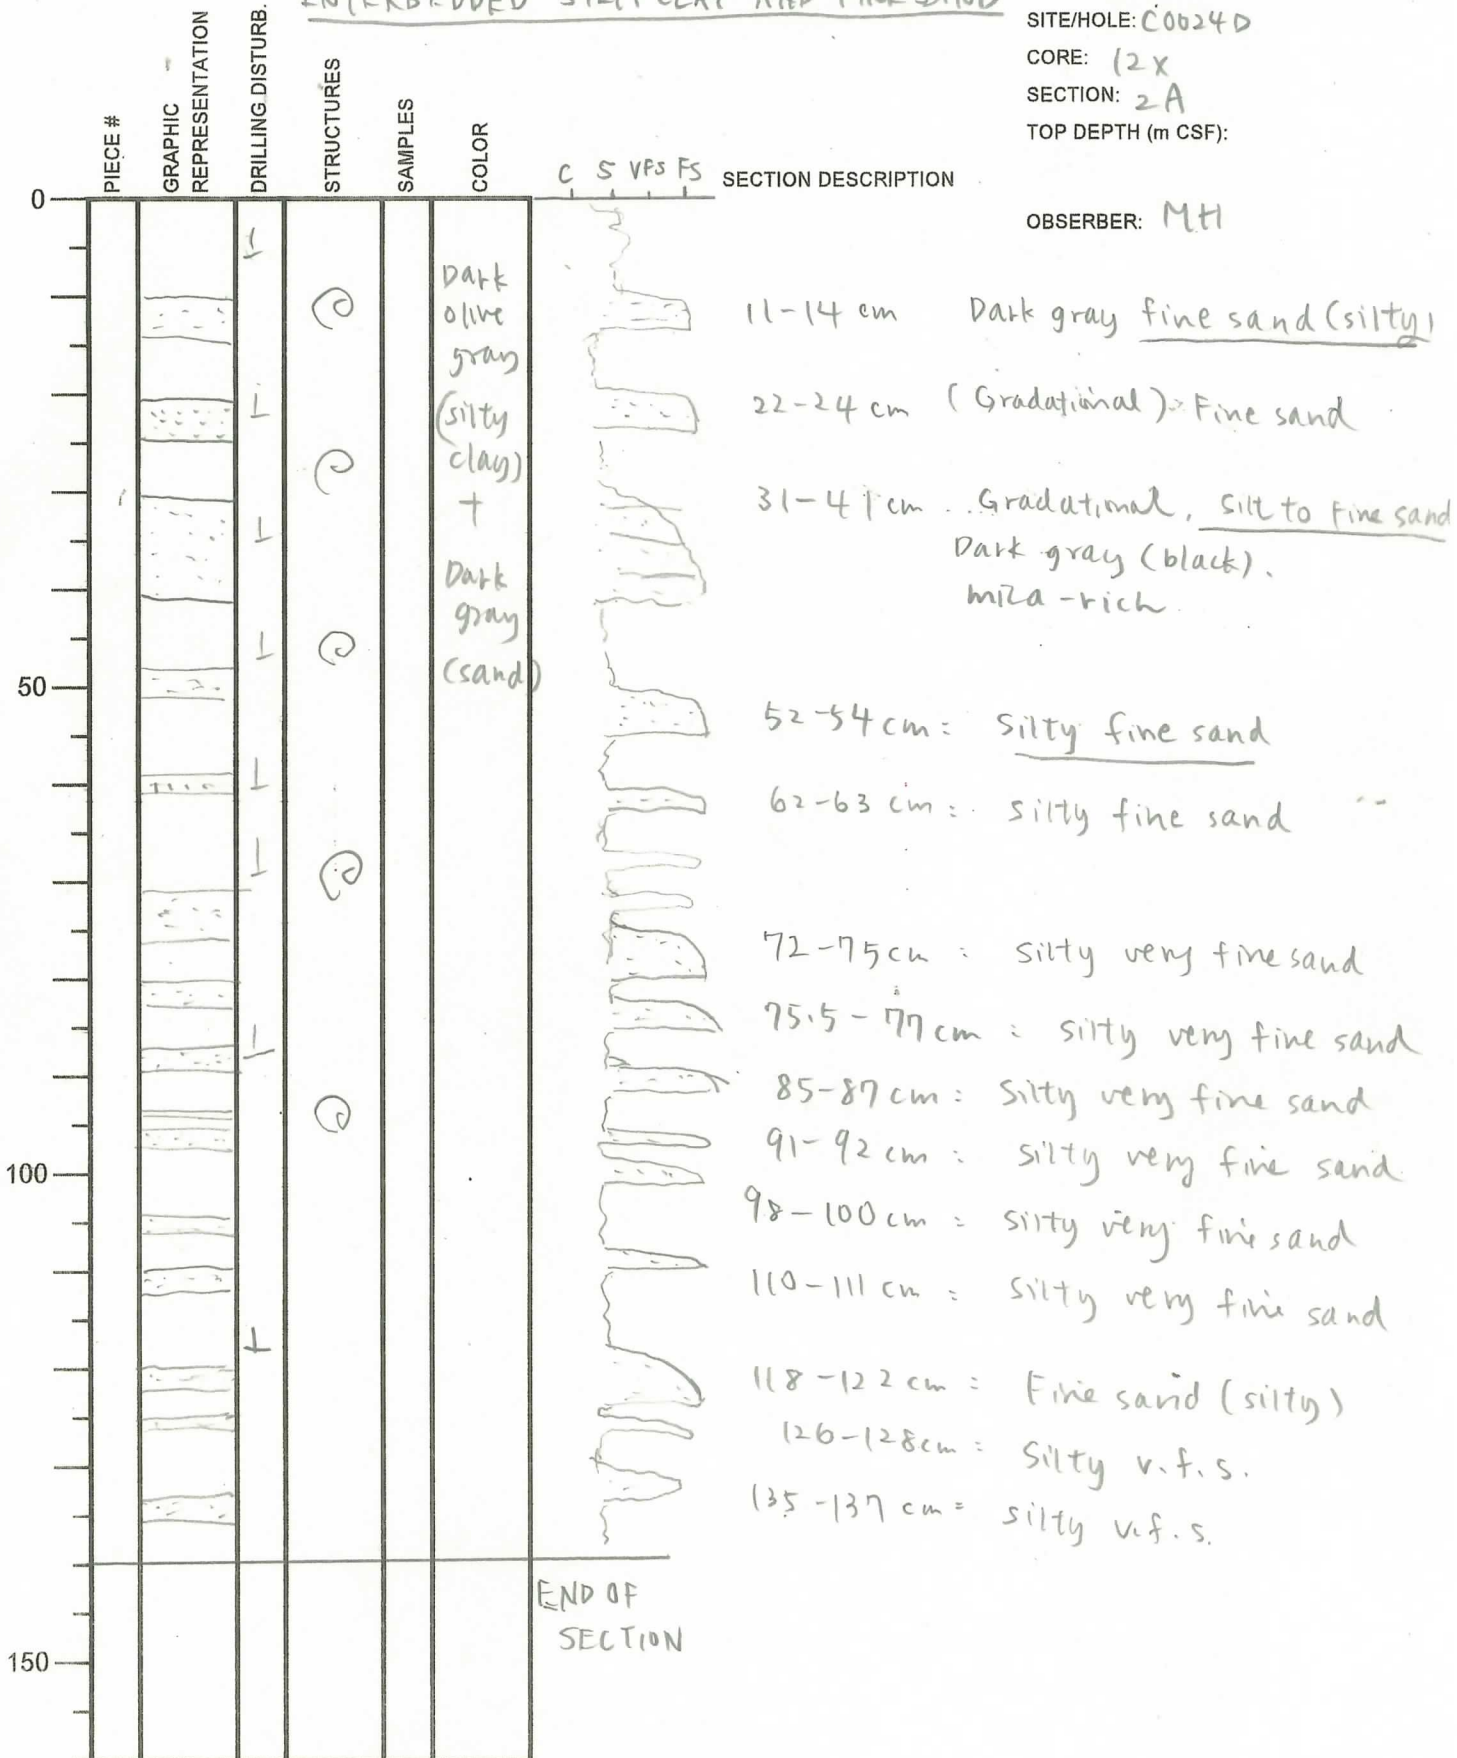 INTERBEDDED SILTY CLAY AND FINE SAND
SITE/HOLE: C0024D
CORE: 12X
SECTION: 2A
TOP DEPTH (m CSF):
OBSERBER: MH
PIECE #
GRAPHIC REPRESENTATION
DRILLING DISTURB.
STRUCTURES
SAMPLES
COLOR
C S VFS FS SECTION DESCRIPTION
0
50
100
150
Dark
olive
gray
(silty
clay)
+
Dark
gray
(sand)
11-14 cm Dark gray fine sand (silty)
22-24 cm (Gradational) Fine sand
31-41 cm Gradational, silt to fine sand
Dark gray (black).
mica-rich
52-54 cm = Silty fine sand
62-63 cm = silty fine sand
72-75 cm : silty very fine sand
75.5-77 cm : silty very fine sand
85-87 cm = Silty very fine sand
91-92 cm : silty very fine sand
98-100 cm = silty very fine sand
110-111 cm = silty very fine sand
118-122 cm = Fine sand (silty)
126-128 cm = Silty v.f.s.
135-137 cm = silty v.f.s.
END OF
SECTION